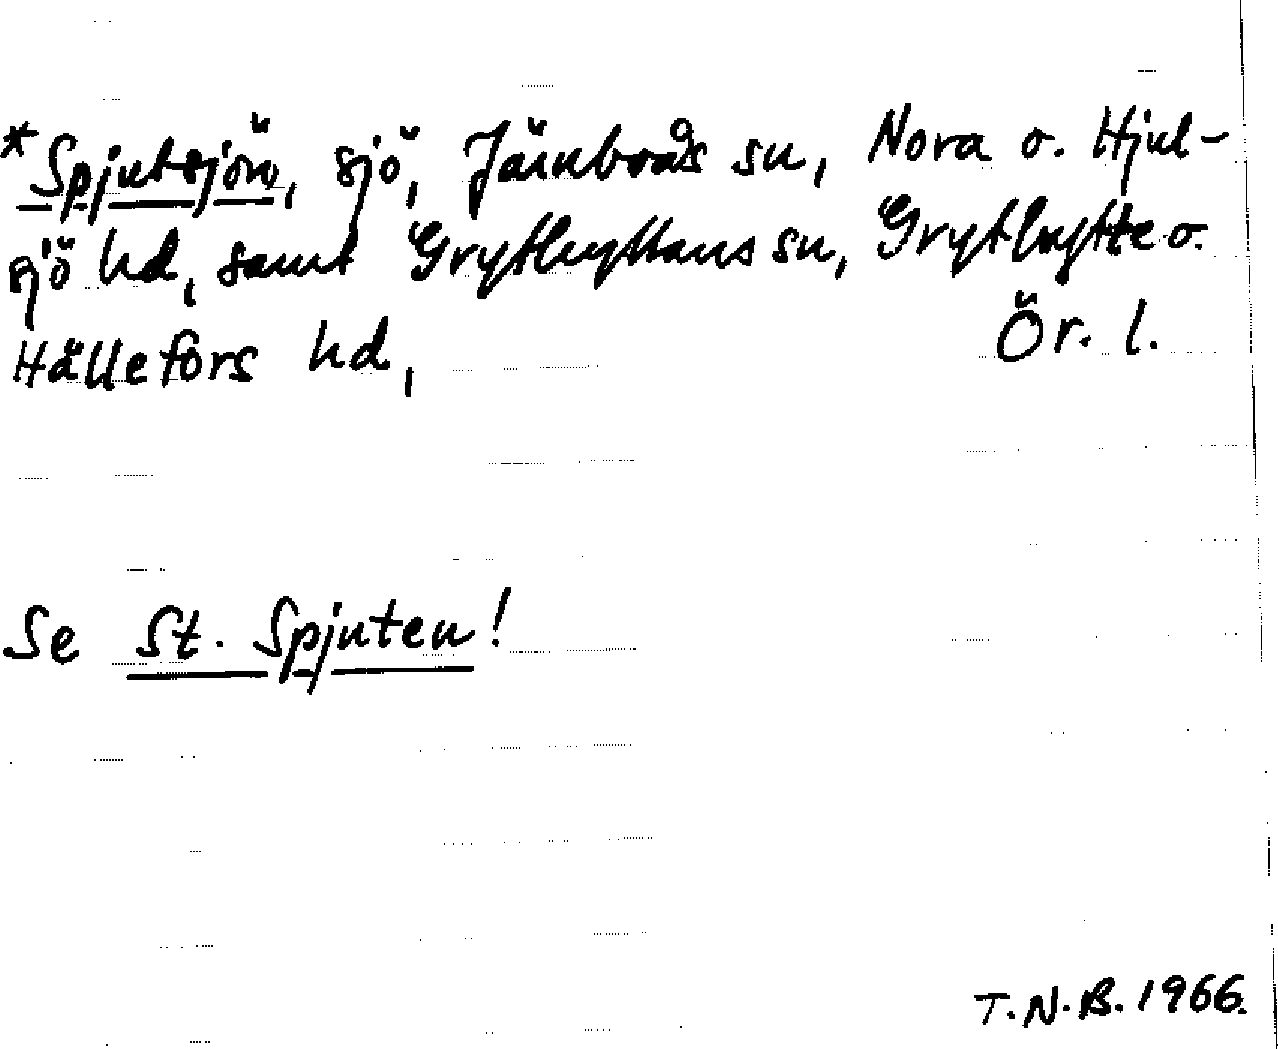 *Spjutsjön, sjö, Järnboås sn, Nora o. Hjul-
sjö hd, samt Grythyttans sn, Grythytte o.
Hällefors hd, Ör. l.
Se St. Spjuten!
T.N.B. 1966.